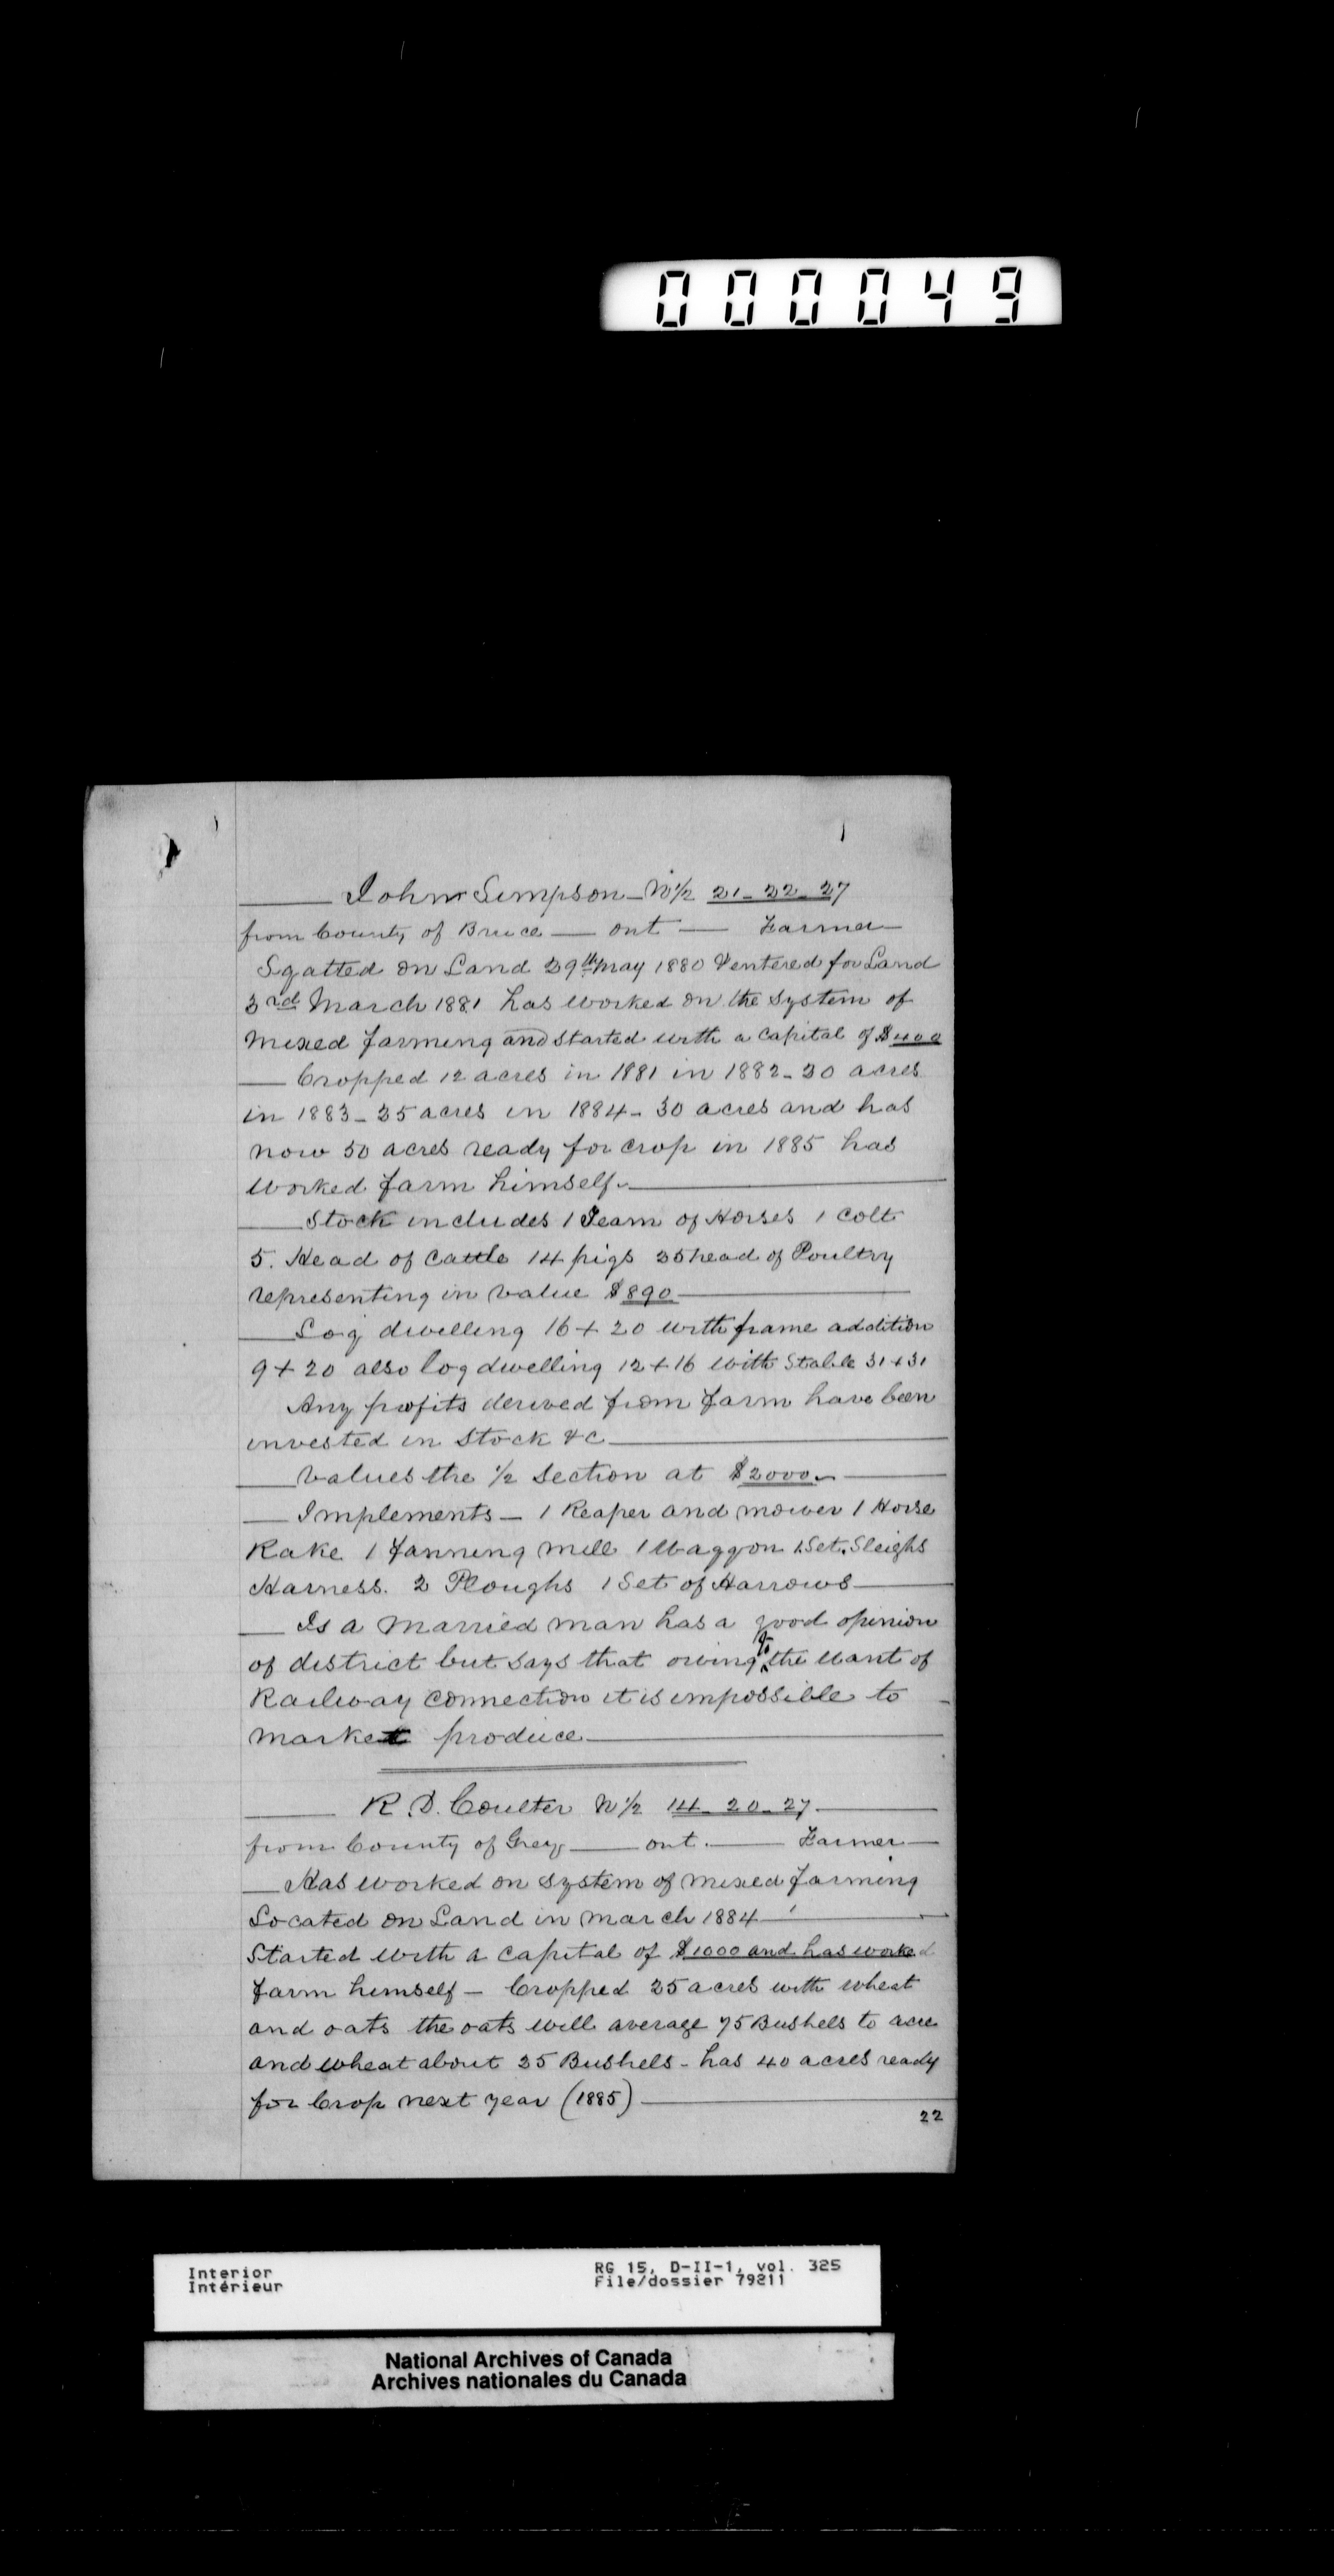 000049
John Simpson - N 1/2 21-22-27
from County of Bruce — Ont — Farmer —
Sqatted on Land 29th May 1880 & entered for Land
3rd March 1881 has worked on the system of
mixed farming and started with a capital of $400
— Cropped 12 acres in 1881 in 1882 - 30 acres
in 1883 - 35 acres in 1884 - 30 acres and has
now 50 acres ready for crop in 1885 has
worked farm himself. —
— Stock includes 1 Team of Horses 1 Colt
5. Head of Cattle 14 pigs 35 head of Poultry
representing in value $890 —
— Log dwelling 16 + 20 with frame addition
9 + 20 also log dwelling 12 + 16 with Stable 31 + 31
Any profits derived from farm have been
invested in Stock &c —
— Values the 1/2 Section at $2000. —
— Implements — 1 Reaper and mower 1 Horse
Rake 1 Fanning mill 1 Waggon 1 Set. Sleighs
Harness. 2 Ploughs 1 Set of Harrows —
— Is a married man has a good opinion
of district but says that owing to the want of
Railway connection it is impossible to
market produce —
— R. D. Coulter N 1/2 14-20-27 —
from County of Grey — Ont. — Farmer —
— Has worked on system of mixed farming
Located on Land in March 1884 —
Started with a capital of $1000 and has worked
farm himself — Cropped 25 acres with wheat
and oats the oats will average 75 Bushels to acre
and wheat about 25 Bushels - has 40 acres ready
for Crop next year (1885) —
22
Interior RG 15, D-II-1, vol. 325
Intérieur File/dossier 79211
National Archives of Canada
Archives nationales du Canada